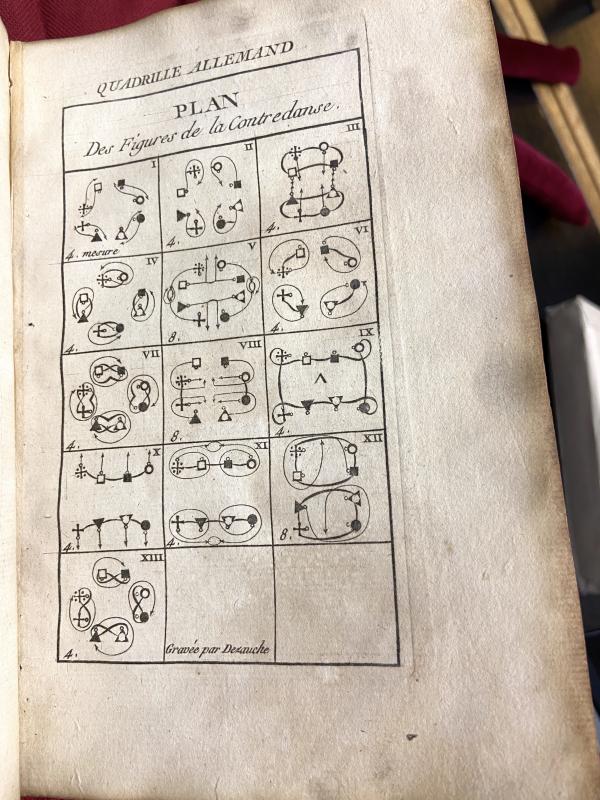 QUADRILLE ALLEMAND
PLAN
Des Figures de la Contredanse.
I
4. mesure
II
4.
III
4.
IV
4.
V
8.
VI
4.
VII
4.
VIII
8.
IX
4.
X
4.
XI
4.
XII
8.
XIII
4.
Gravée par Dezauche